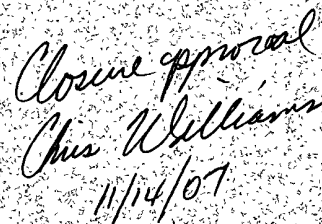 Closure approval
Chris Williams
11/14/07